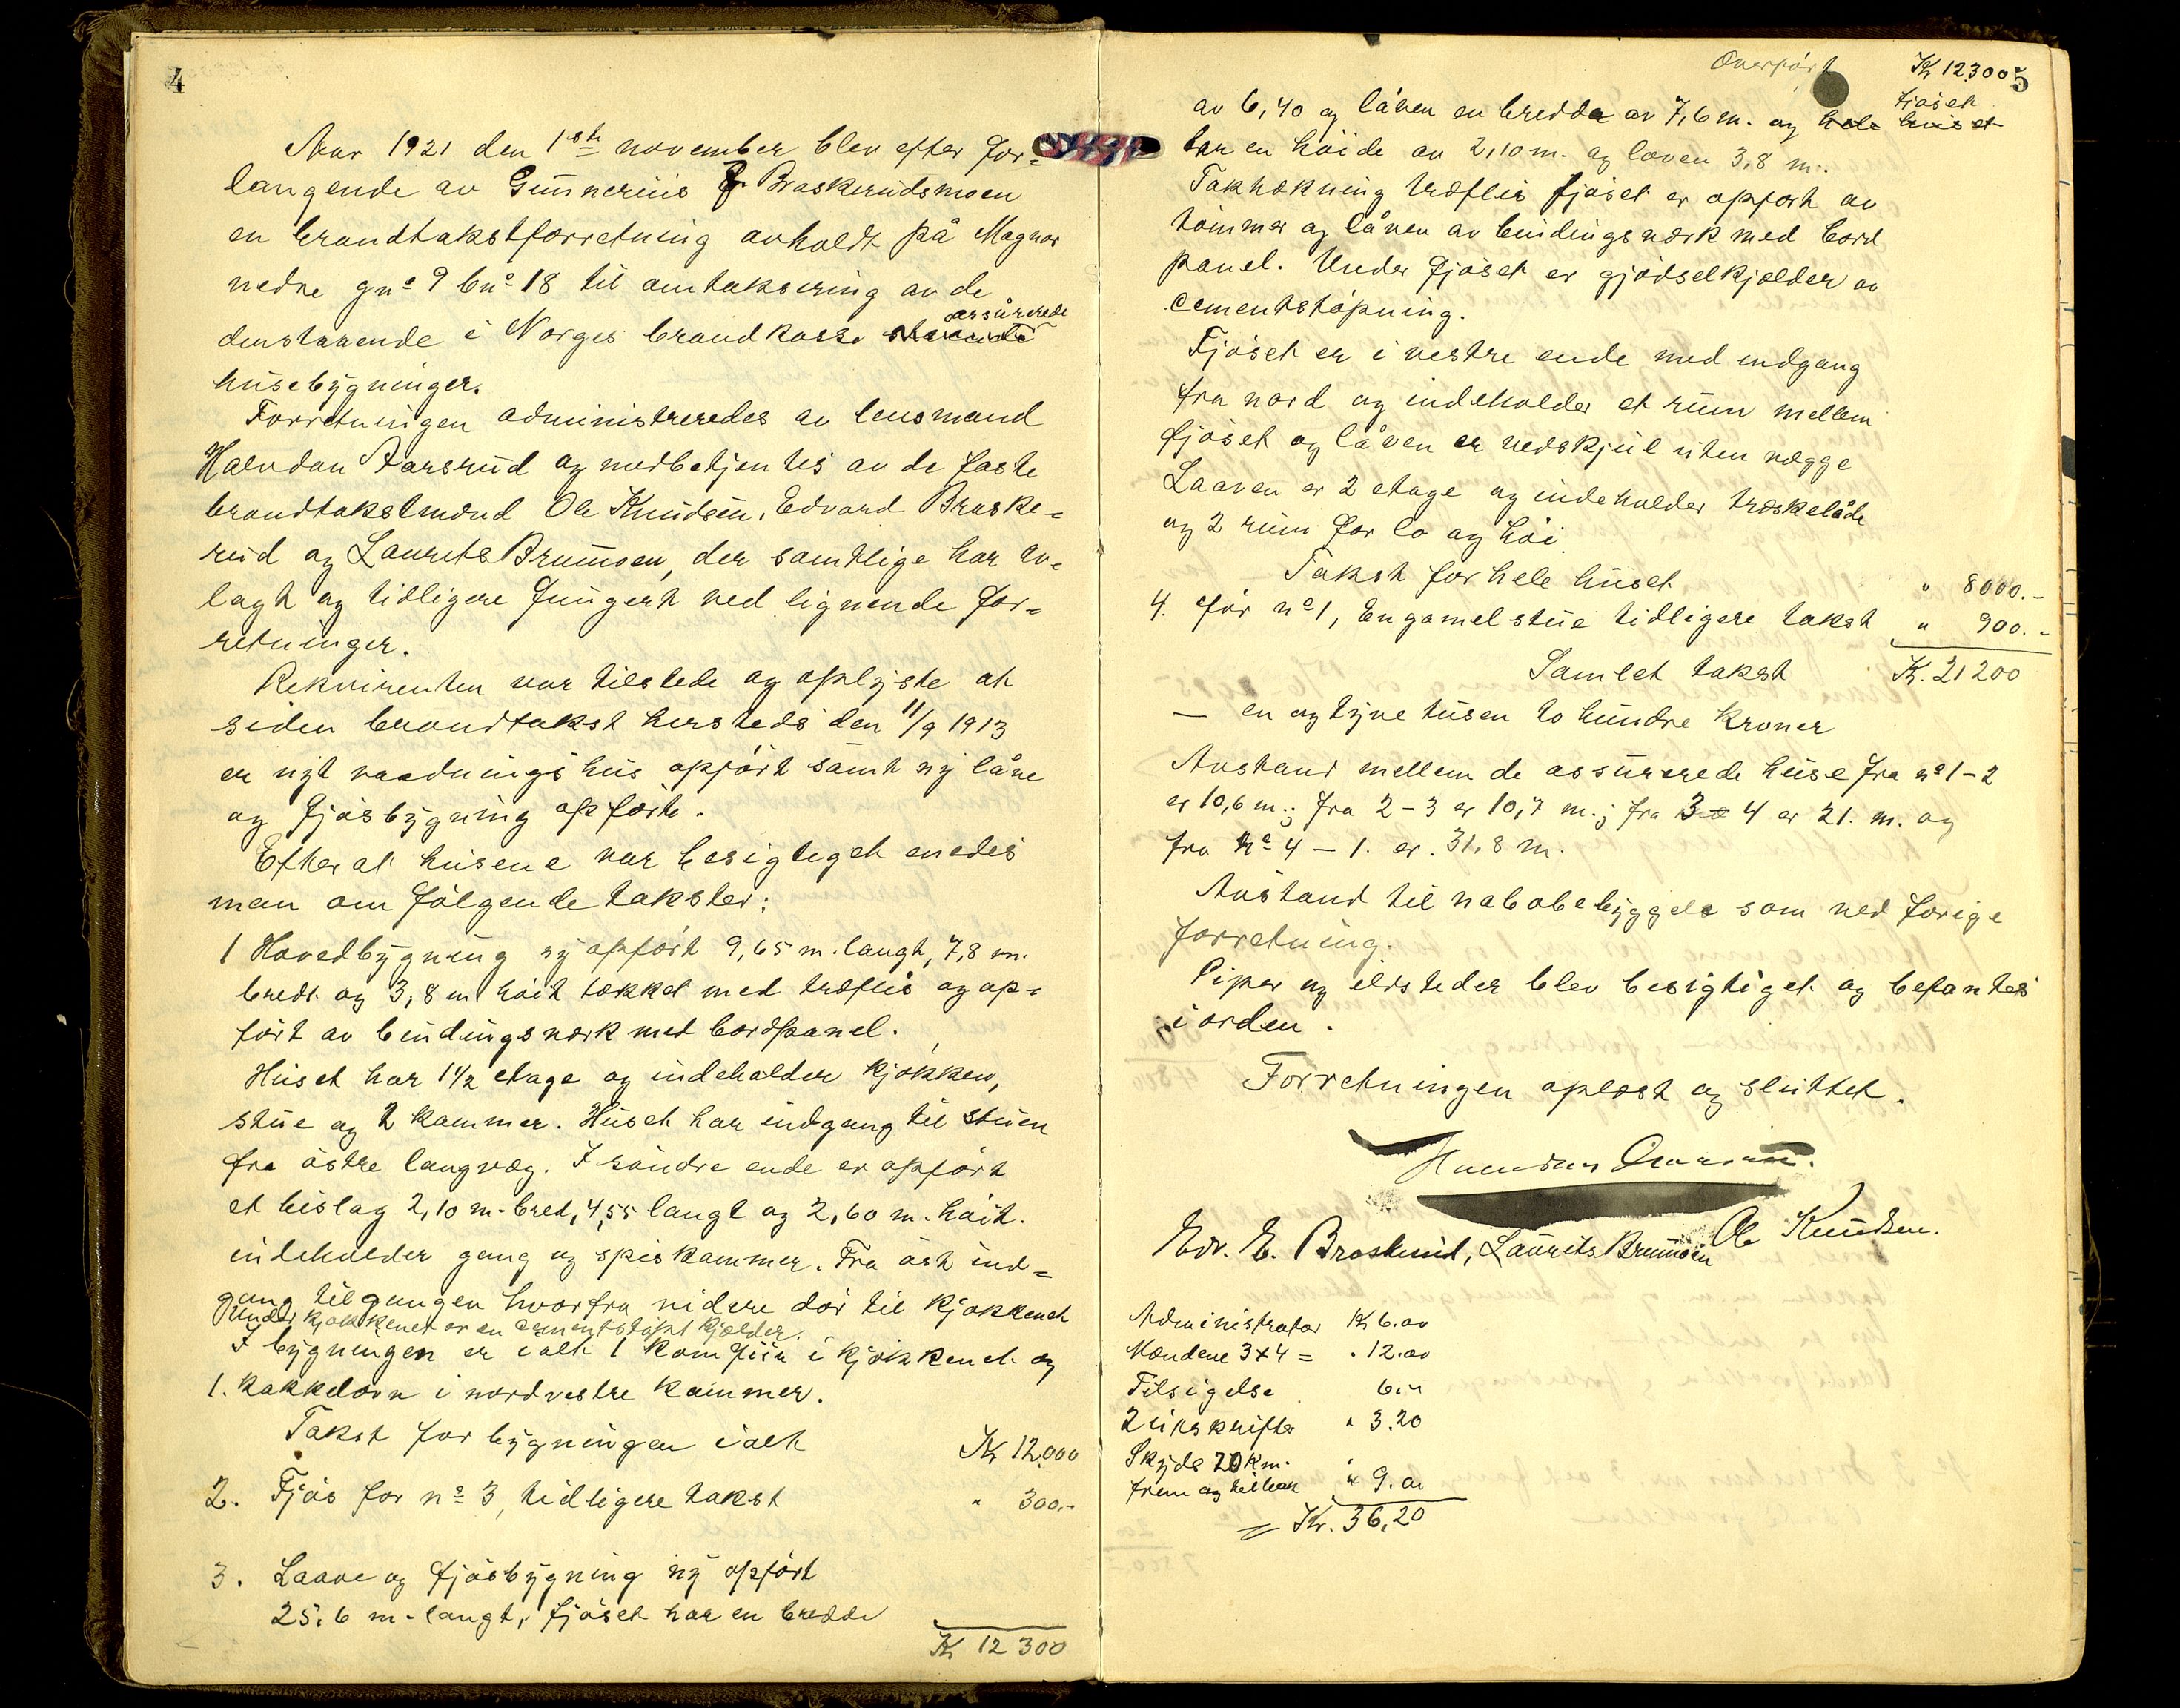 4
Aar 1921 den 1ste november blev efter for-
langende av Gunnerius Braskerudsmoen
en brandtakstforretning avholdt på Magnor
nedre gno 9 bno 18 til omtaksering av de
assurerede
denstaaende i Norges brandkasse
husebygninger.
Forretningen administreredes av lensmand
Halvdan Aarsrud og medbetjentes av de faste
brandtakstmænd Ole Knudsen, Edvard Braske-
rud og Laurits Brumoen, der samtlige har av-
lagt og tidligere fungert ved lignende for-
retninger.
Rekvirenten var tilstede og oplyste at
siden brandtakst hersteds den 11/9 1913
er nyt vaaningshus opført samt ny låve
og fjøsbygning opførte.
Efter at husene var besigtiget enedes
man om følgende takster:
1 Hovedbygning ny opført 9,65 m. langt, 7,8 m.
bredt og 3,8 m høit tækket med træflis og op-
ført av bindingsværk med bordpanel.
Huset har 1 1/2 etage og indeholder kjøkken,
stue og 2 kammer. Huset har indgang til stuen
fra østre langvæg. I søndre ende er opført
et bislag 2,10 m. bred, 4,55 langt og 2,60 m. høit.
indeholder gang og spiskammer. Fra øst ind-
gang til gangen hvorfra videre dør til kjøkkenet
Under kjøkkenet er en cementstøpt kjælder.
I bygningen er ialt 1 komfür i kjøkkenet og
1. kakkelovn i nordvestre kammer.
Takst for bygningen ialt Kr 12.000
2. Fjøs før no 3, tidligere takst " 300.-
3. Laave og fjøsbygning ny opført
25,6 m. langt, fjøset har en bredde
Kr 12 300
Overført Kr 12300 5
fjøset
av 6,40 og låven en bredde av 7,6 m. og hele huset
har en høide av 2,10 m. og låven 3,8 m.
Taktækning træflis fjøset er opført av
tømmer og låven av bindingsværk med bord
panel. Under fjøset er gjødselkjælder av
cementstøpning.
Fjøset er i vestre ende med indgang
fra nord og indeholder et rum mellem
fjøset og låven er vedskjul uten vægge
Laaven er 2 etage og indeholder træskelåde
og 2 rum for lo og høi
Takst for hele huset " 8000.-
4. før no 1, En gamel stue tidligere takst " 900.-
Samlet takst Kr. 21 200
— en og tyve tusen to hundre kroner
Avstand mellem de assurerede huse fra no 1-2
er 10,6 m.; fra 2-3 er 10,7 m.; fra 3 4 er 21. m. og
fra no 4 - 1. er. 31,8 m.
Avstand til nabobebyggelse som ved forige
forretning.
Piper og ildsteder blev besigtiget og befantes
i orden.
Forretningen oplæst og sluttet.
Halvdan Aarsrud.
Edv. E. Braskerud, Laurits Brumoen Ole Knudsen.
Administrator Kr 6.00
Mændene 3x4 = " 12.00
Tilsigelse 6.-
2 utskrifter " 3.20
Skyds 20 km.
frem og tilbak " 9.00
= Kr. 36,20